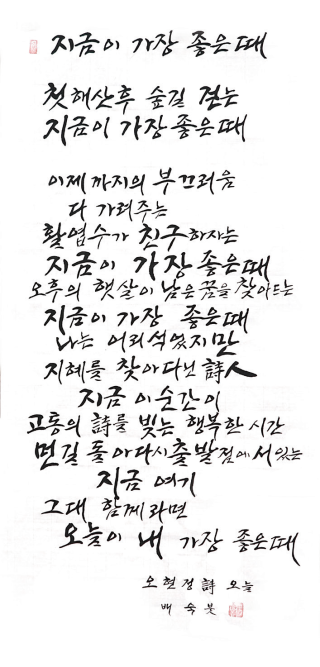 지금이 가장 좋은때
첫 해산후 숲길 걷는
지금이 가장 좋은때
이제까지의 부끄러움
다 가려주는
활엽수가 친구하자는
지금이 가장 좋은때
오후의 햇살이 남은 꿈을 찾아드는
지금이 가장 좋은때
나는 어리석었지만
지혜를 찾아다닌 詩人
지금 이순간이
고통의 詩를 빚는 행복한 시간
먼길 돌아 다시 출발점에 서있는
지금 여기
그대 함께라면
오늘이 내 가장 좋은때
오현정 詩 오늘
배숙 붓